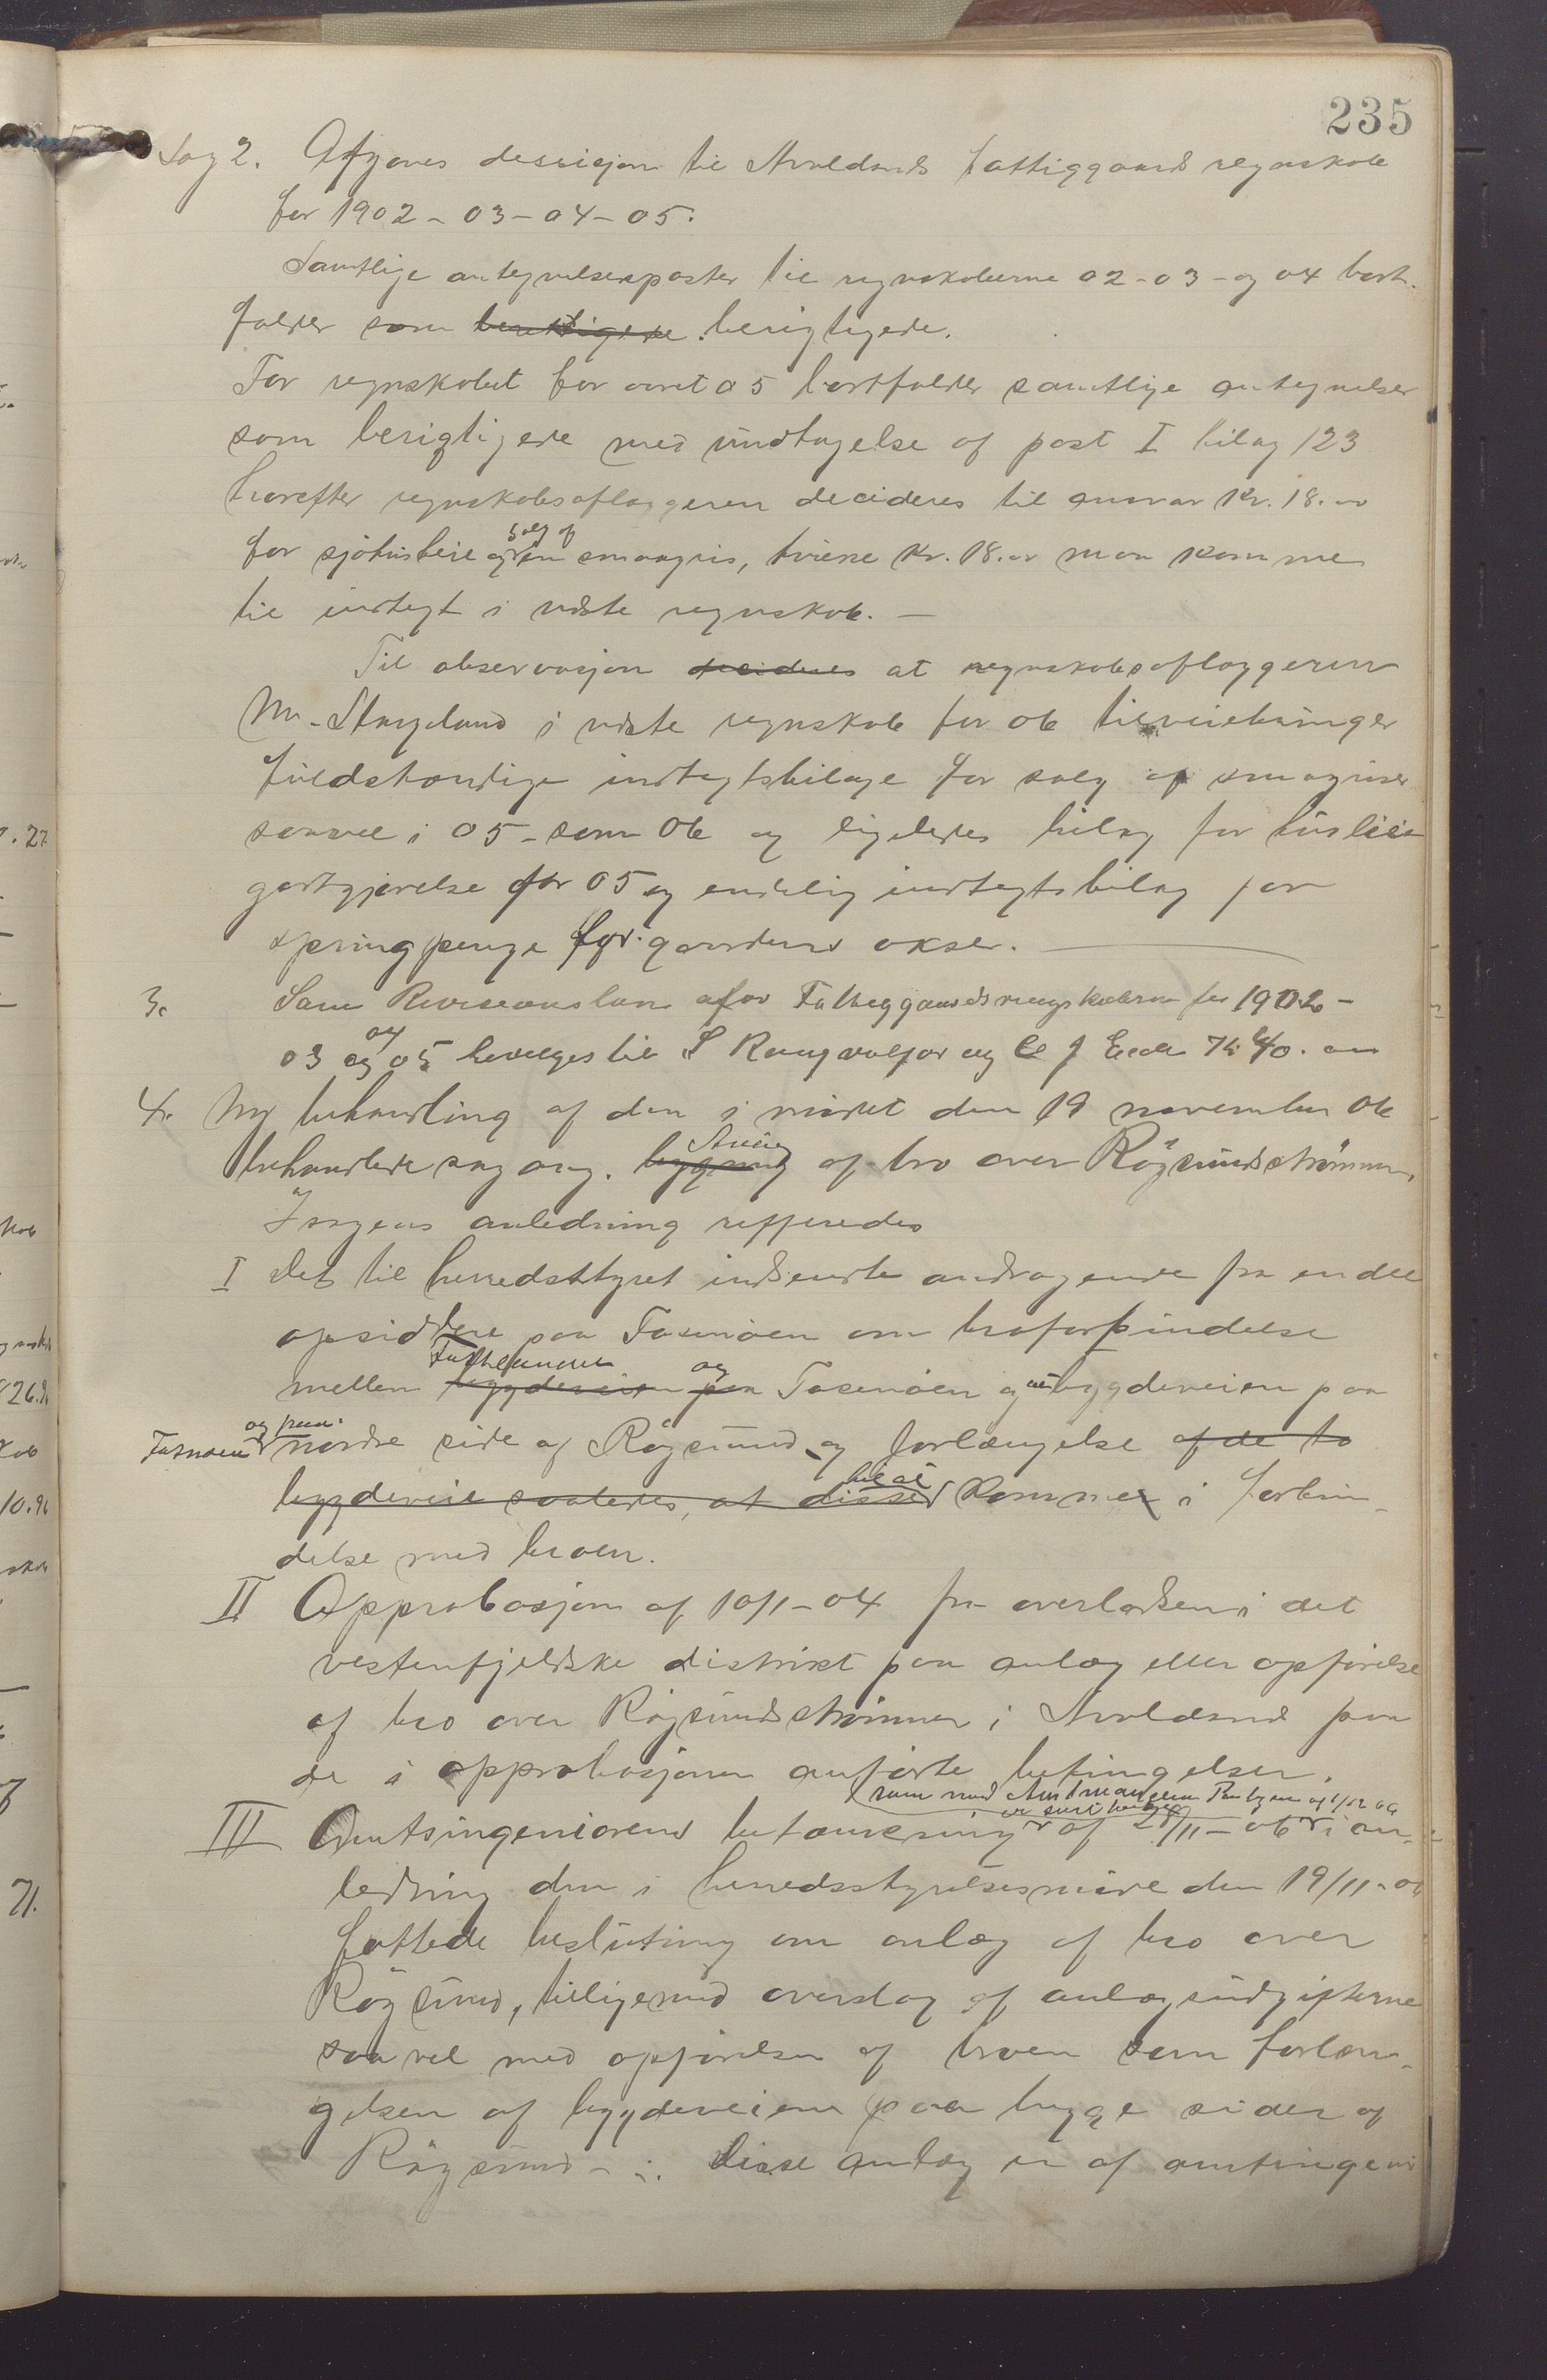 235
Sag 2. Afgaves desisjon til Avaldsnes fattiggaards regnskab
for 1902-03-04-05.
Samtlige antegnelsesposter til regnskaberne 02-03- og 04 bort-
falder som berigtigede.
For regnskabet for aaret 05 bortfalder samtlige antegnelser
som berigtigede med undtagelse af post I bilag 123
hvorefter regnskabsaflæggeren decideres til ansvar Kr. 18.00
for sjøhusleie og salg af en smaagris, hvilke Kr. 18.00 maa komme
til indtægt i næste regnskab. —
Til observasjon decideres at regnskabsaflæggeren
M. Stangeland i næste regnskab for 06 tilveiebringer
fuldstændige indtægtsbilage for salg af smagriser
saavel i 05 - som 06 og ligeledes bilag for husleie
godtgjørelse for 05 og endelig indtægtsbilag for
springpenge for gaardens okser. —
3. Som Revisionsløn for Fattiggaardsregnskaberne for 1902-
03 04 og 05 bevilges til S Rangvaldjor og Kr 40.00
4. Ny behandling af den i møtet den 19 november 06
behandlede sag ang. bygning af bro over Røgsundstrømmen.
I sagens anledning refferedes
I Det til herredsstyret indsendte andragende fra endel
opsiddere paa Fosenøen om broforbindelse
mellem Fastlandet bygdeveien paa og Fosenøen og bygdeveien paa
Fosnøen og paa nordre side af Røgsund og forlængelse af de to
bygdeveie saaledes, at disse til at kommer i forbin-
delse med broen.
II Approbasjon af 10/1-04 fra overlodsen i det
vestenfjeldske distrikt paa anlæg eller opførelse
af bro over Røgsundstrømmen i Avaldsnes paa
de i approbasjonen anførte betingelser.
som med Amtmandens Paategn af 1/12 06
III Amtsingeniørens betænkning af 28/11-06 i an-
ledning den i herredsstyrelsesmøde den 19/11-06
fattede beslutning om anlæg af bro over
Røgsund, tilligemed overslag af anlægsudgifterne
saavel med opførelsen af broen som forlæn-
gelsen af bygdeveiene paa begge sider af
Røgsund -. Disse anlæg er af amtsingeni